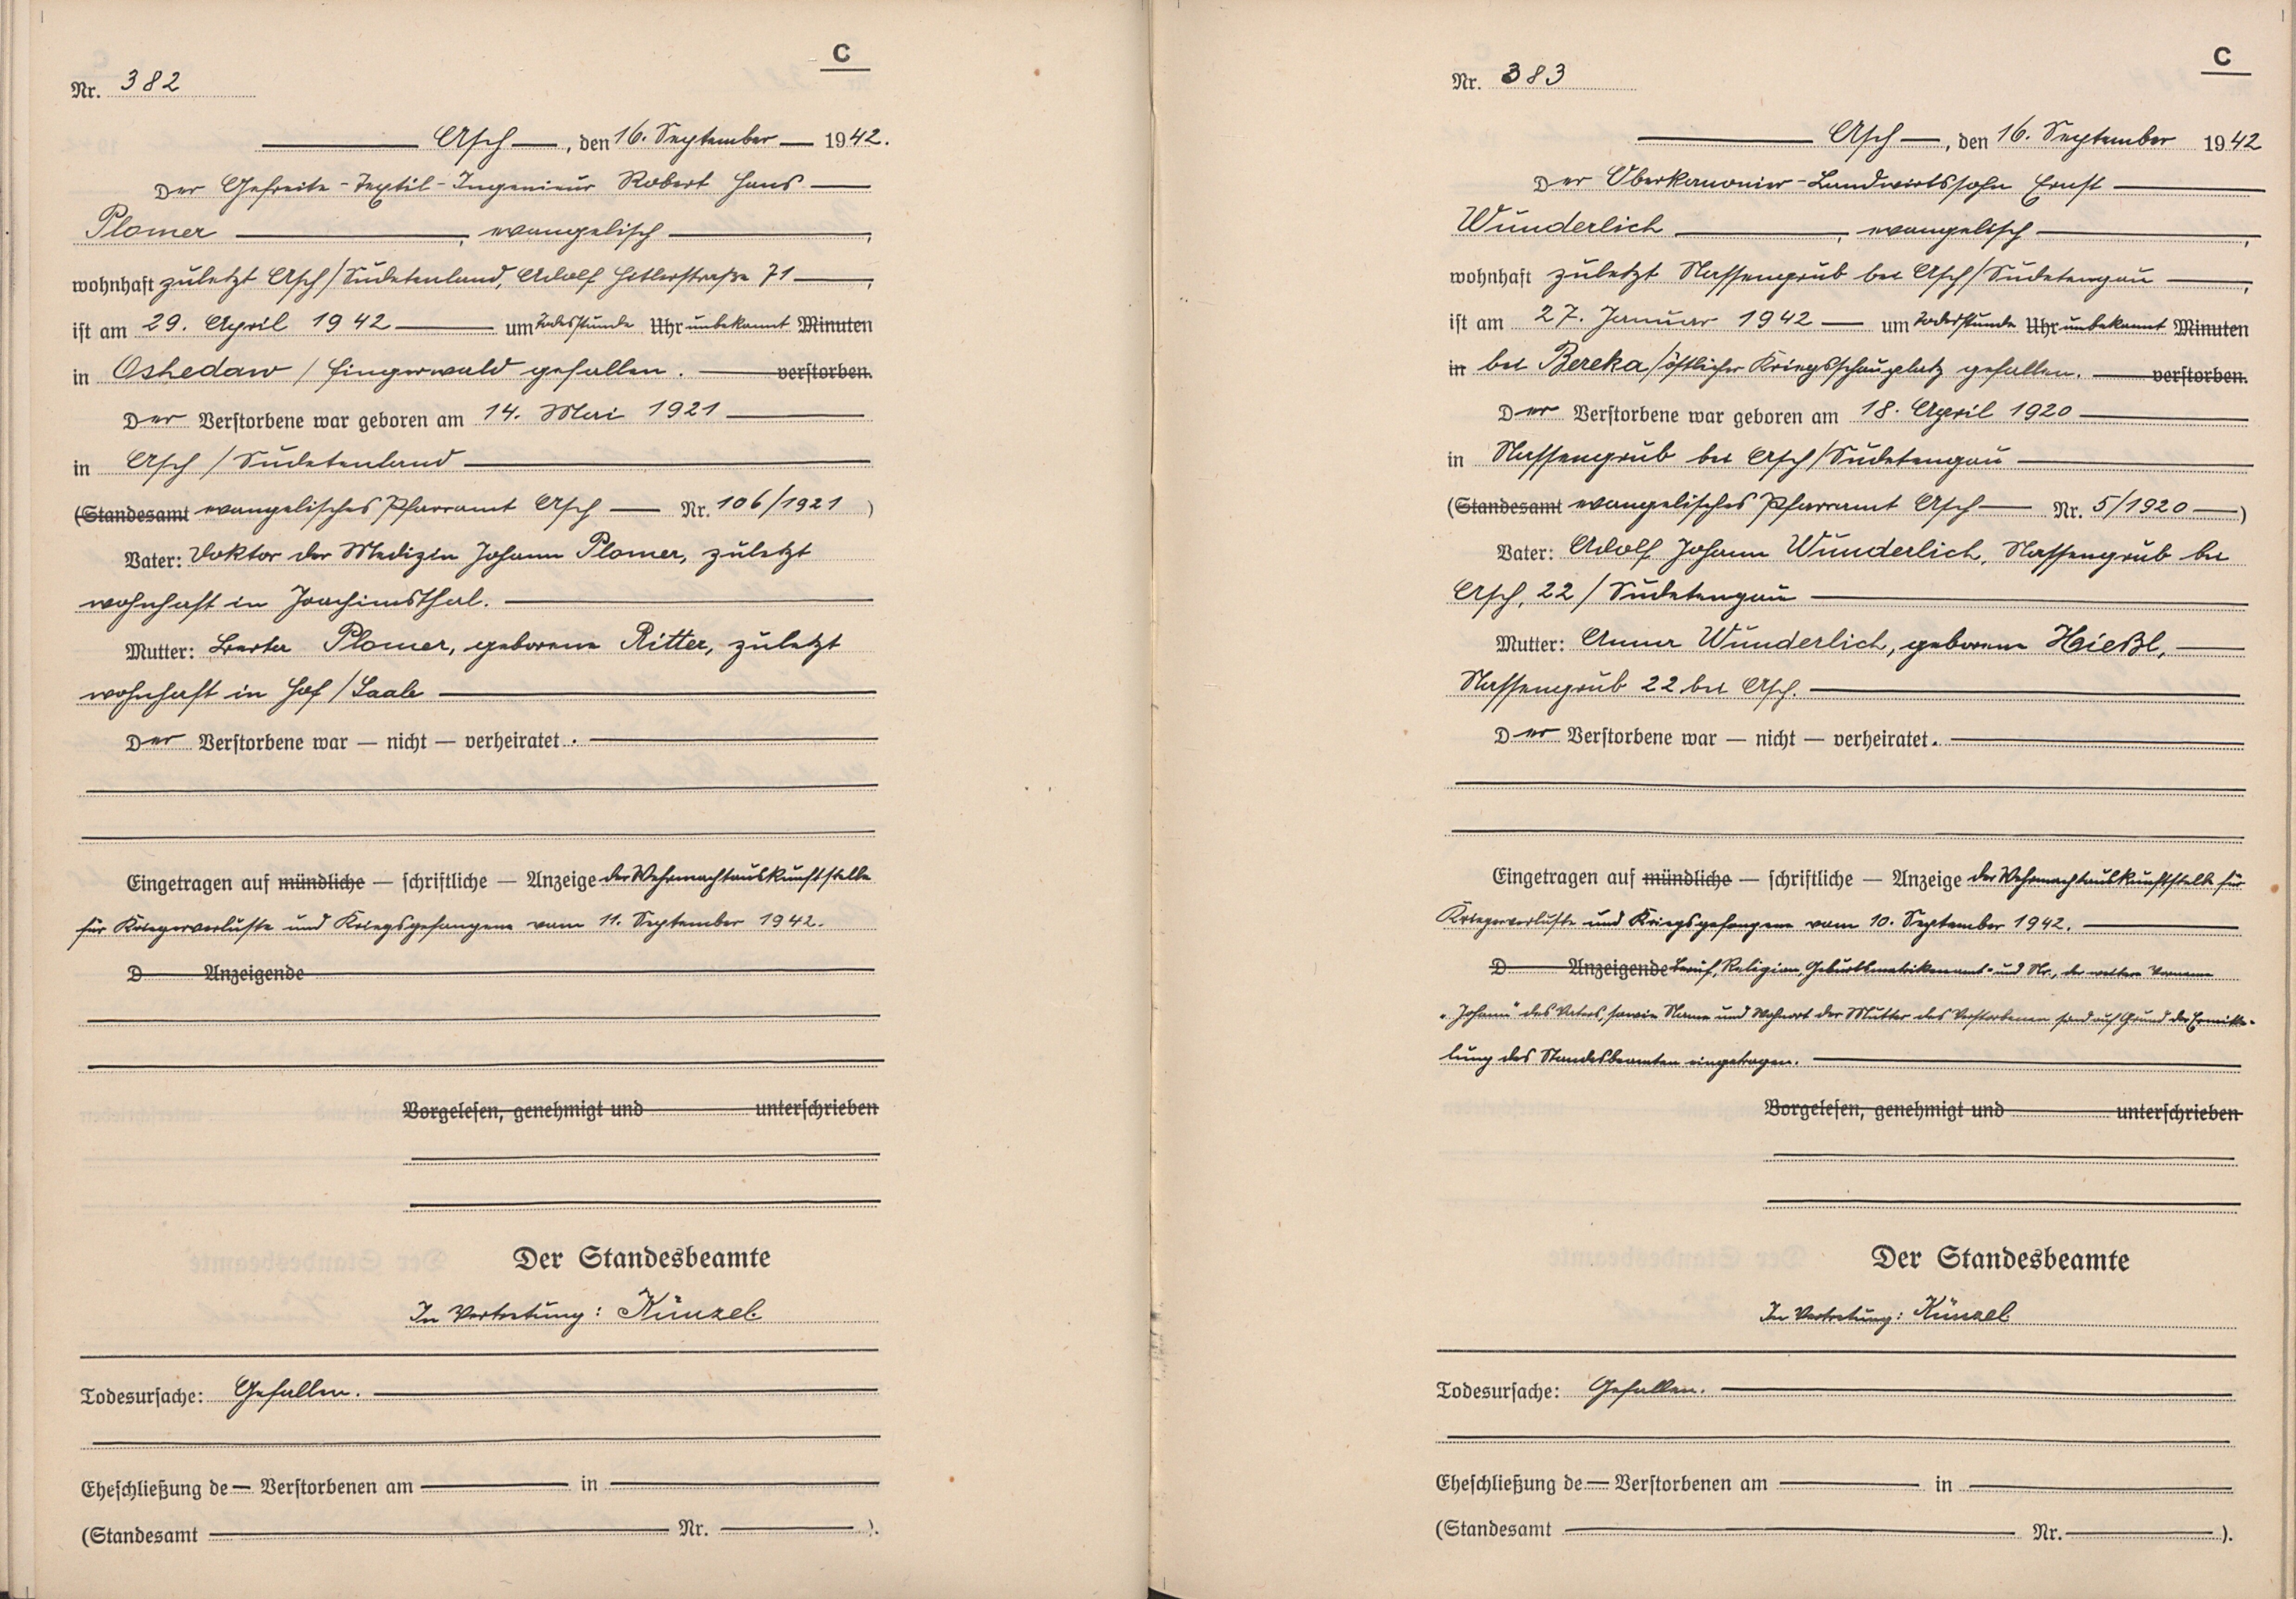 C
Nr. 382
Asch, den 16. September 1942.
Der Gefreite-Textil-Ingenieur Robert Hans
Plomer, evangelisch,
wohnhaft zuletzt Asch/Sudetenland, Adolf Hitlerstraße 71,
ist am 29. April 1942 um Todesstunde Uhr unbekannt Minuten
in Oshedaw / Fingerwald gefallen. verstorben.
Der Verstorbene war geboren am 14. Mai 1921
in Asch / Sudetenland
(Standesamt evangelisches Pfarramt Asch Nr. 106/1921)
Vater: Doktor der Medizin Johann Plomer, zuletzt
wohnhaft in Joachimsthal.
Mutter: Berta Plomer, geborene Ritter, zuletzt
wohnhaft in Hof / Saale
Der Verstorbene war — nicht — verheiratet.
Eingetragen auf mündliche — schriftliche — Anzeige der Wehrmachtauskunftstelle
für Kriegerverluste und Kriegsgefangene vom 11. September 1942.
D Anzeigende
Vorgelesen, genehmigt und unterschrieben
Der Standesbeamte
In Vertretung: Künzel.
Todesursache: Gefallen.
Eheschließung de Verstorbenen am in
(Standesamt Nr. ).
C
Nr. 383
Asch, den 16. September 1942
Der Oberkanonier-Landwirtssohn Ernst
Wunderlich, evangelisch,
wohnhaft zuletzt Nassengrub bei Asch/Sudetengau,
ist am 27. Januar 1942 um Todesstunde Uhr unbekannt Minuten
in bei Bereka/östlicher Kriegsschauplatz gefallen. verstorben.
Der Verstorbene war geboren am 18. April 1920
in Nassengrub bei Asch/Sudetengau
(Standesamt evangelisches Pfarramt Asch Nr. 5/1920)
Vater: Adolf Johann Wunderlich, Nassengrub bei
Asch, 22 / Sudetengau
Mutter: Anna Wunderlich, geborene Hießl,
Nassengrub 22 bei Asch.
Der Verstorbene war — nicht — verheiratet.
Eingetragen auf mündliche — schriftliche — Anzeige der Wehrmachtauskunftstelle für
Kriegerverluste und Kriegsgefangene vom 10. September 1942.
D Anzeigende Beruf, Religion, Geburtsmatrikenamt und Nr., der weitere Vorname
„Johann" des Vaters, sowie Name und Wohnort der Mutter des Verstorbenen sind auf Grund der Ermitte-
lung des Standesbeamten eingetragen.
Vorgelesen, genehmigt und unterschrieben
Der Standesbeamte
In Vertretung: Künzel
Todesursache: Gefallen.
Eheschließung de Verstorbenen am in
(Standesamt Nr. ).